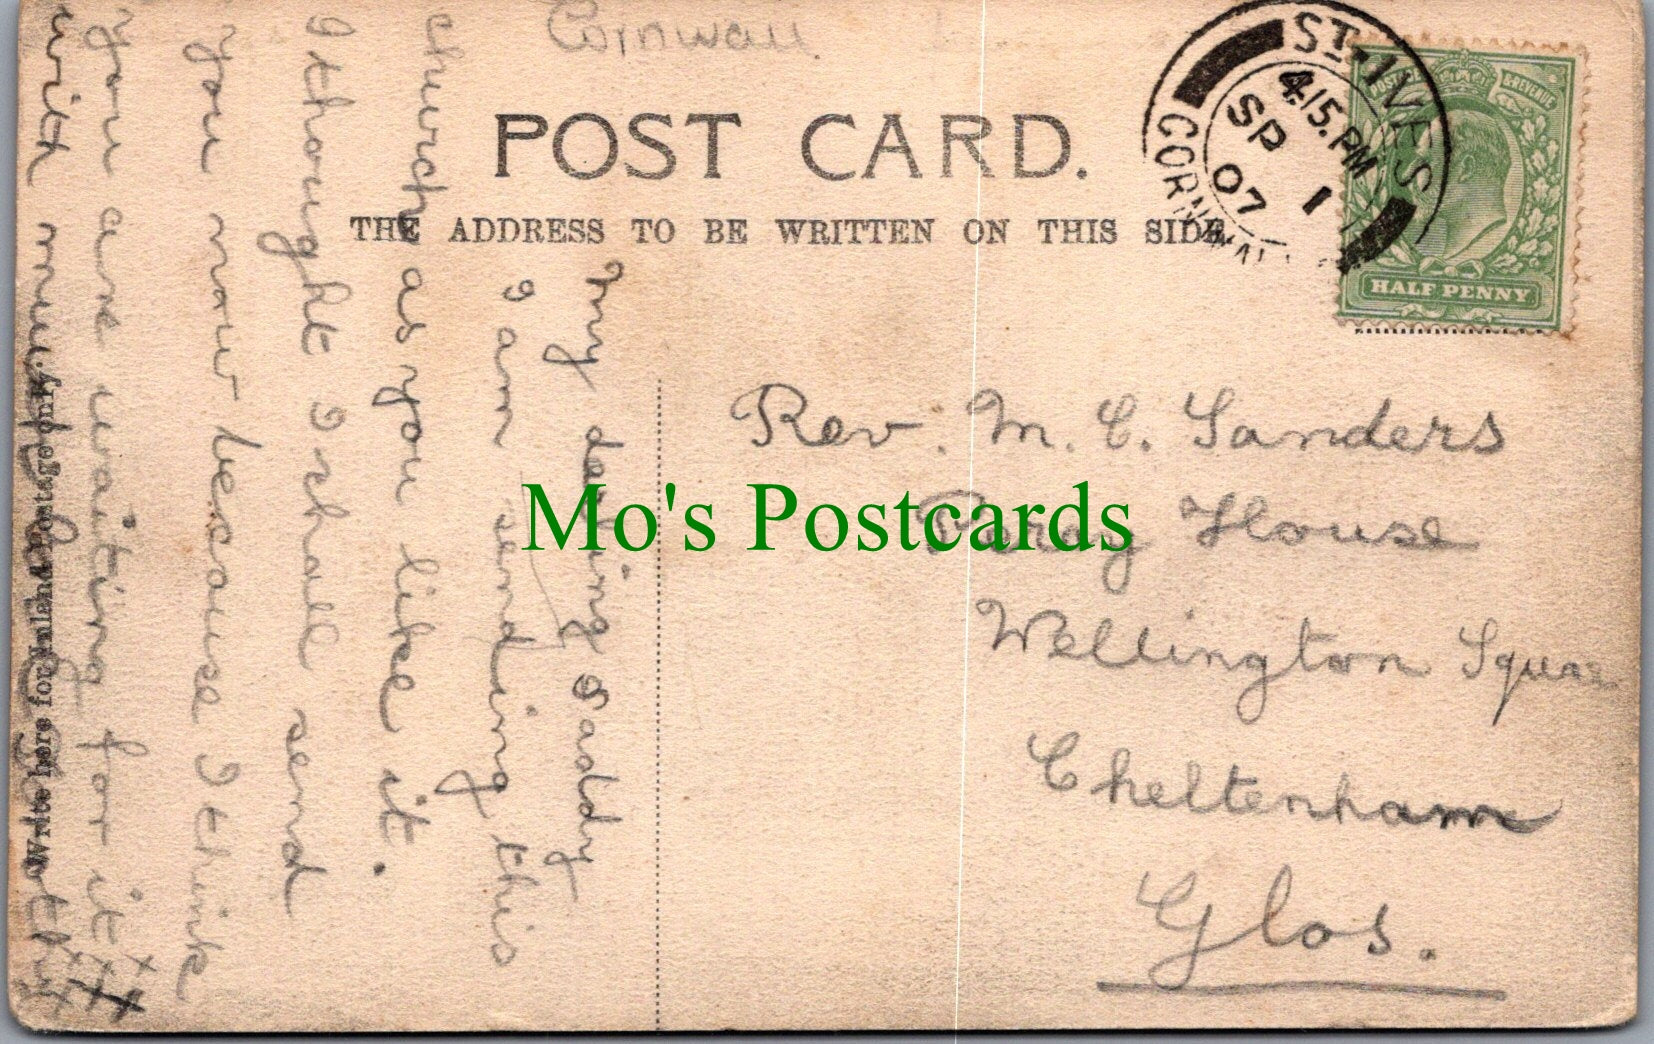 Cornwall
POST CARD.
THE ADDRESS TO BE WRITTEN ON THIS SIDE.
ST. IVES
4.15.PM
SP 1
07
CORNWALL
POSTAGE & REVENUE
HALF PENNY
Rev. M. C. Sanders
House
Wellington Square
Cheltenham
Glos.
My darling Daddy
I am sending this
church as you like it.
I thought I shall send
you now because I think
you are waiting for it
with much love
Write here for Inland Postage only.
Mo's Postcards